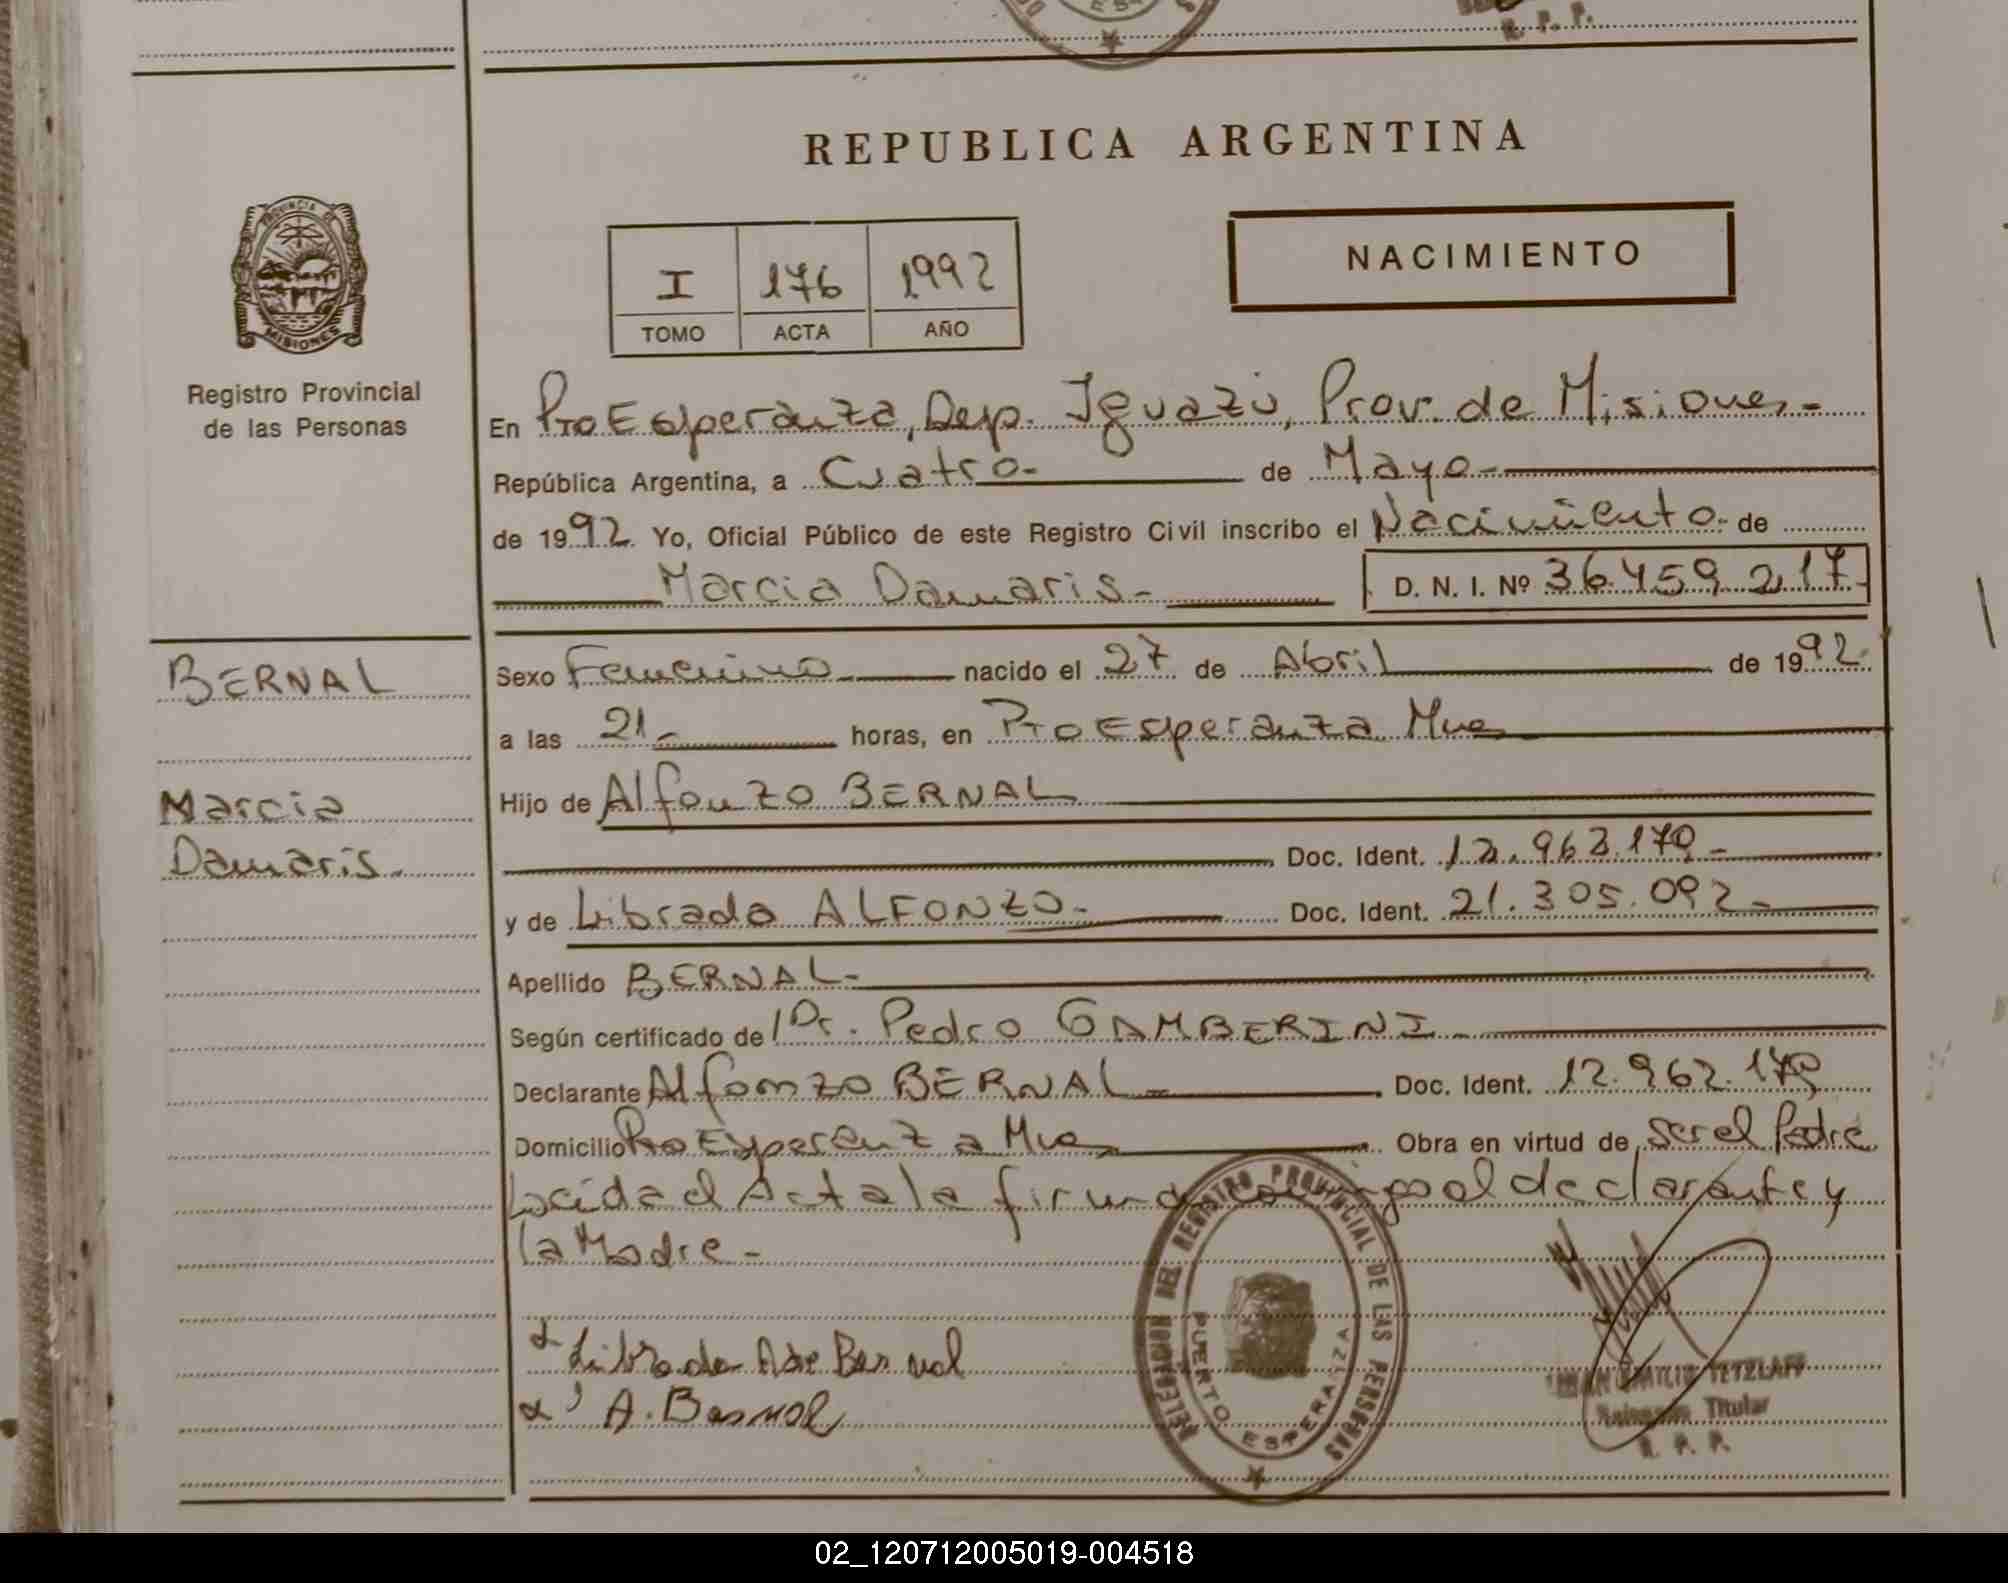 R. P. P.
REPUBLICA ARGENTINA
PROVINCIA DE
MISIONES
Registro Provincial
de las Personas
I 176 1992
TOMO ACTA AÑO
NACIMIENTO
En Pto Esperanza, Dep. Iguazú, Prov. de Misiones.-
República Argentina, a Cuatro.- de Mayo.-
de 1992. Yo, Oficial Público de este Registro Civil inscribo el Nacimiento.- de
Marcia Damaris.- D. N. I. Nº 36.459.217-
BERNAL
Marcia
Damaris.-
Sexo Femenino nacido el 27 de Abril de 1992.
a las 21.- horas, en Pto Esperanza Mnes
Hijo de Alfonzo BERNAL
Doc. Ident. 12.962.170.-
y de Librada ALFONZO.- Doc. Ident. 21.305.092.-
Apellido BERNAL-
Según certificado de Dr. Pedro GAMBERINI.-
Declarante Alfonzo BERNAL.- Doc. Ident. 12.962.170
Domicilio Pto Esperanza Mnes Obra en virtud de ser el Padre
Leída el Acta la firma conmigo el declarante y
la Madre.-
Librada A de Bernal
A. Bernal
DELEGACION DEL REGISTRO PROVINCIAL DE LAS PERSONAS
PUERTO ESPERANZA
TETZLAFF
Titular
R. P. P.
02_120712005019-004518